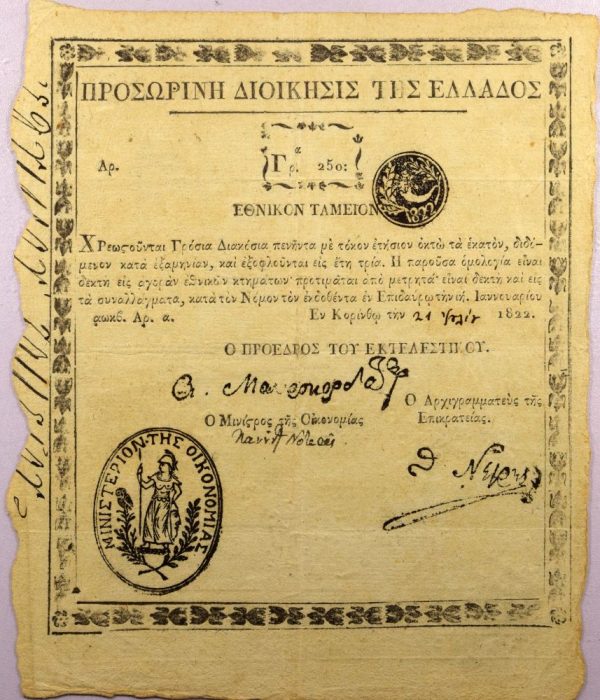 ΠΡΟΣΩΡΙΝΗ ΔΙΟΙΚΗΣΙΣ ΤΗΣ ΕΛΛΑΔΟΣ
Αρ. Γρ.α 250:
1822
ΕΘΝΙΚΟΝ ΤΑΜΕΙΟΝ
Χρεωςοῦνται Γρόσια Διακόσια πενῆντα μὲ τόκον ἐτήσιον ὀκτὼ τὰ ἑκατὸν, διδό-
μενον κατὰ ἑξαμηνίαν, καὶ ἐξοφλοῦνται εἰς ἔτη τρία. Ἡ παροῦσα ὁμολογία εἶναι
δεκτὴ εἰς ἀγορὰν ἐθνικῶν κτημάτων· προτιμᾶται ἀπὸ μετρητά· εἶναι δεκτὴ καὶ εἰς
τὰ συναλλάγματα, κατὰ τὸν Νόμον τὸν ἐκδοθέντα ἐν Ἐπιδαύρῳ τὴν ιή. Ἰαννουαρίου
αωκβ. Αρ. α. Ἐν Κορίνθῳ τὴν 21 1822.
Ο ΠΡΟΕΔΡΟΣ ΤΟΥ ΕΚΤΕΛΕΣΤΙΚΟΥ.
Α. Μαυροκορδάτος
Ο Μινίςρος τῆς Οἰκονομίας
Ο Αρχιγραμματεὺς τῆς
Επικρατείας.
Πανούτ Νοταρᾶς
Θ Νέγρης
ΜΙΝΙΣΤΕΡΙΟΝ ΤΗΣ ΟΙΚΟΝΟΜΙΑΣ